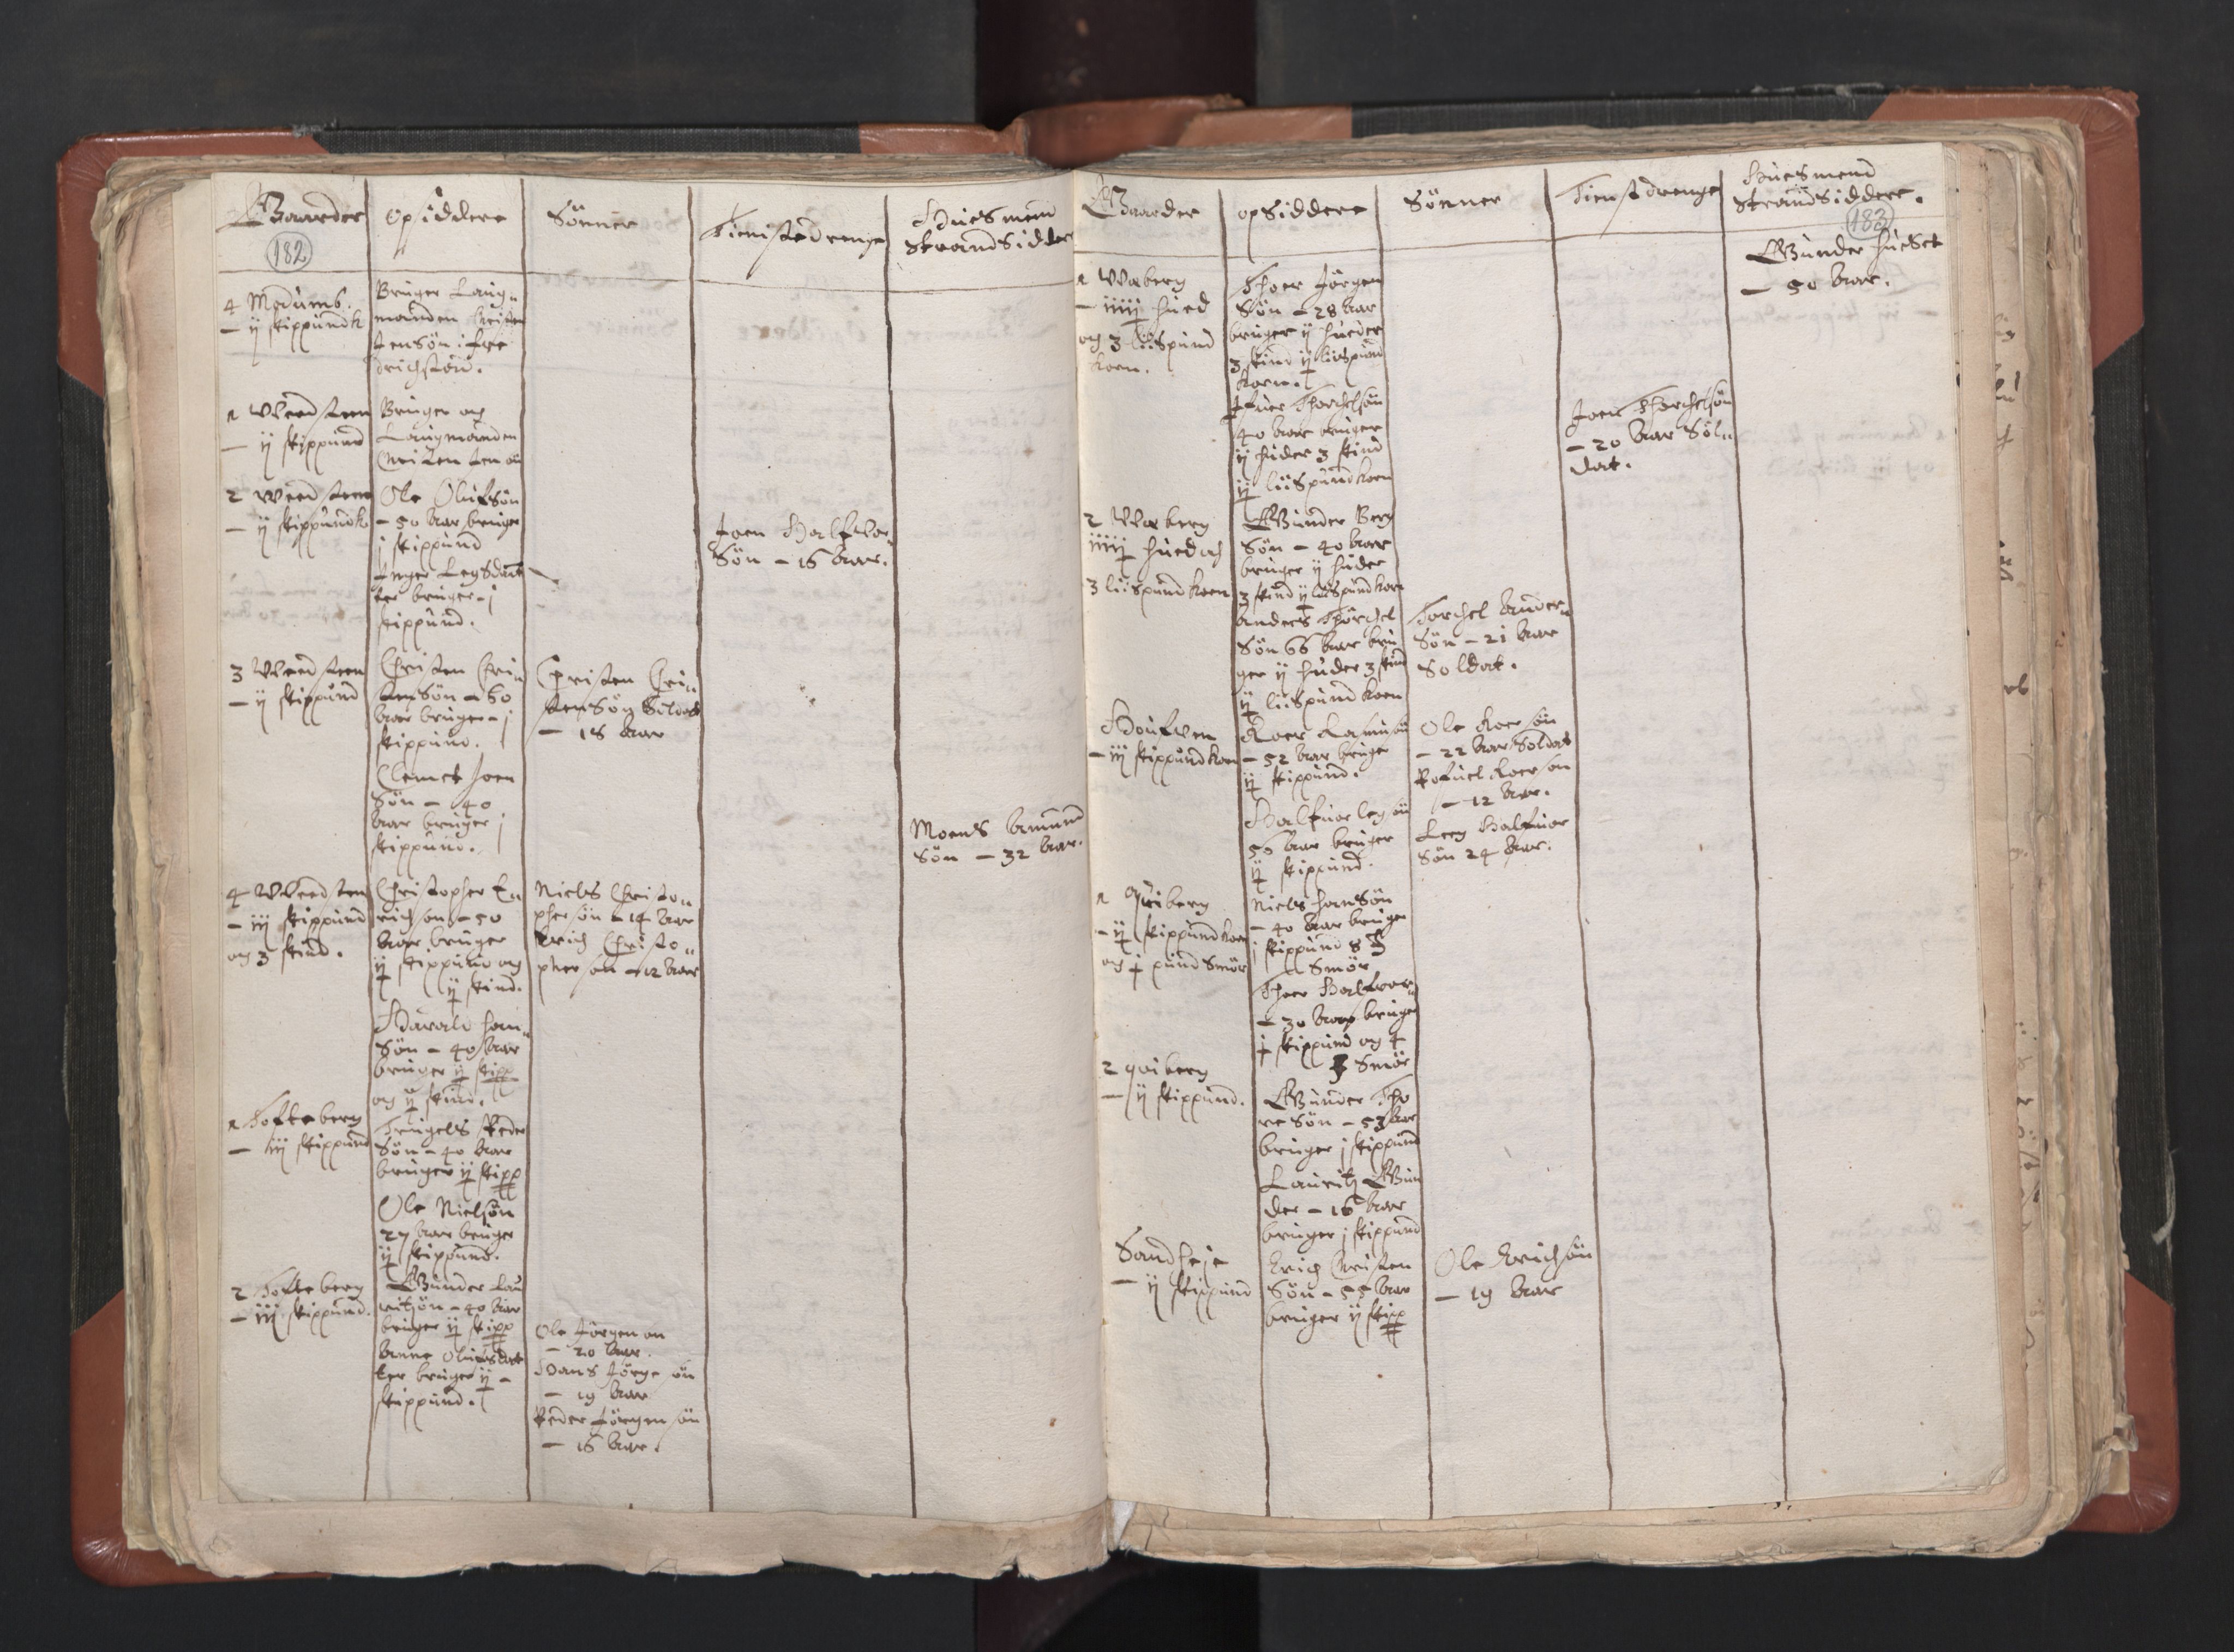 Gaarder
182
opsiddere
Sönner
Tienistedrenge
Huesmend
Strandsidder
4 Modums.
– ij skippundk
Bruger Laug„
manden Christen
JensSön i Fre
drichstad.
1 Weedsteen
– ij skippund
Bruger og
Laugmanden
2 Weedsteen
– ij skippundk
Ole OlufSön
– 50 Aar bruger
j skippund
Inger Legsdaat
ter bruger – j
skippund.
Joen Halfvor
Sön – 16 Aar.
3 Weedsteen
– ij skippund
Christen Chri
stenSön – 60
Aar bruger – j
skippund.
Clemet Joen
Sön – 40
Aar bruger j
skippund.
Christen Chri„
stenSön Soldat
– 18 Aar
Moens Amund
Sön – 32 Aar.
4 Weedsten
– iij skippund
og 3 skind.
Christopher En
richson – 50
Aar bruger
ij skippund og
ij skind.
Harald han„
Sön – 40 Aar
bruger ij skipp
og ij skind.
Niels Christo„
pherSön – 14 Aar
Erich Christo„
pherson – 12 Aar
1 Tofteberg
– iij skippund
Trugels Peder
Sön – 40 Aar
bruger ij skipp
Ole Nielsön
27 Aar bruger
ij skippund.
2 Tofteberg
– iij skippund.
Gunder Lau
ritzön – 40 Aar
bruger ij skipp
Anne Olufsdat
ter bruger ij –
skippund.
Ole Jörgenson
– 20 Aar.
Hans Jörgesön
– 19 Aar
Peder Jörgensön
– 16 Aar.
Gaarder
opSiddere
Sönner
Tienstdrenge
Huesmend
StrandSiddere.
183
1 Waberg
– iiij hued
og 3 liispund
korn.
Thoer Jörgen
Sön – 28 Aar
bruger ij hueder
3 skind ij liispund
korn.
Ifuer Thorchelsön
40 Aar bruger
ij huder 3 skind
ij liiSpund korn
Joen Thorchelsön
– 20 Aar Sol„
dat.
Gunder hueset
– 50 Aar.
2 Waberg
iiij hued og
3 liispund korn
Gunder Berg
Sön – 40 Aar
bruger ij huder
3 skind ij liispund korn
Anders Thorchel
Sön 66 Aar bru
ger ij huder 3 skind
ij liispund korn
Torchel Ander„
Sön – 21 Aar
Soldat.
Houfven
– iij skippund korn
Roer Rasmusön
– 52 Aar bruger
ij skippund.
Halfuor legsön
50 Aar bruger
ij skippund.
Ole Roersön
– 22 Aar Soldat
Pofuel Roerson
– 12 Aar.
Leeg Halfuor
Sön 24 Aar.
1 Quiberg
– ij skippund korn
og j pund Smör
Niels hanSön
– 40 Aar bruger
j skippund 8
Smör
Thoer Halfvor„
– 30 Aar bruger
j skippund og 4
Smör
2 Quiberg
– ij skippund.
Gunder Tho
reSön – 53 Aar
bruger j skippund
Lauritz Gun
der – 16 Aar
bruger j skippund
Sandheje
– ij skippund
Erich Christen
Sön – 55 Aar
bruger ij skipp
Ole Erichsön
– 19 Aar